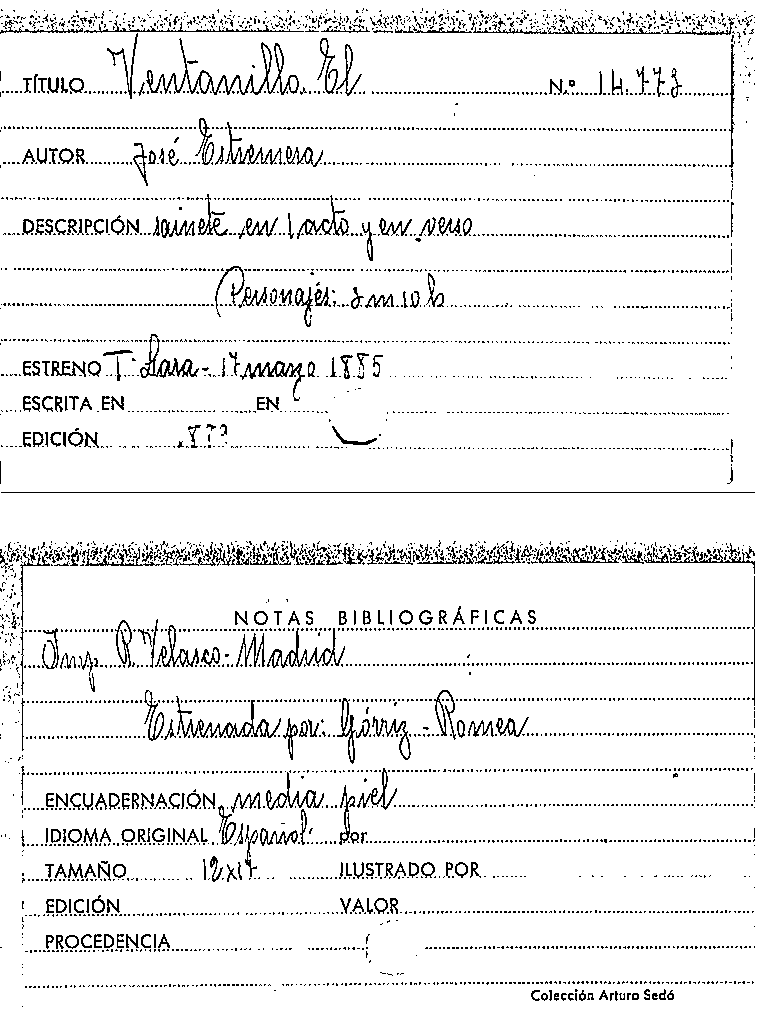 TÍTULO Ventanillo. El N.º 14.773
AUTOR José Estremera
DESCRIPCIÓN sainete en 1 acto y en verso
(Personajes: 3 m 10 h
ESTRENO T. Lara - 17 marzo 1885
ESCRITA EN EN
EDICIÓN
NOTAS BIBLIOGRÁFICAS
Imp. R. Velasco - Madrid
Estrenada por: Górriz - Romea
ENCUADERNACIÓN media piel
IDIOMA ORIGINAL Español. por
TAMAÑO 12x17 ILUSTRADO POR
EDICIÓN VALOR
PROCEDENCIA
Colección Arturo Sedó